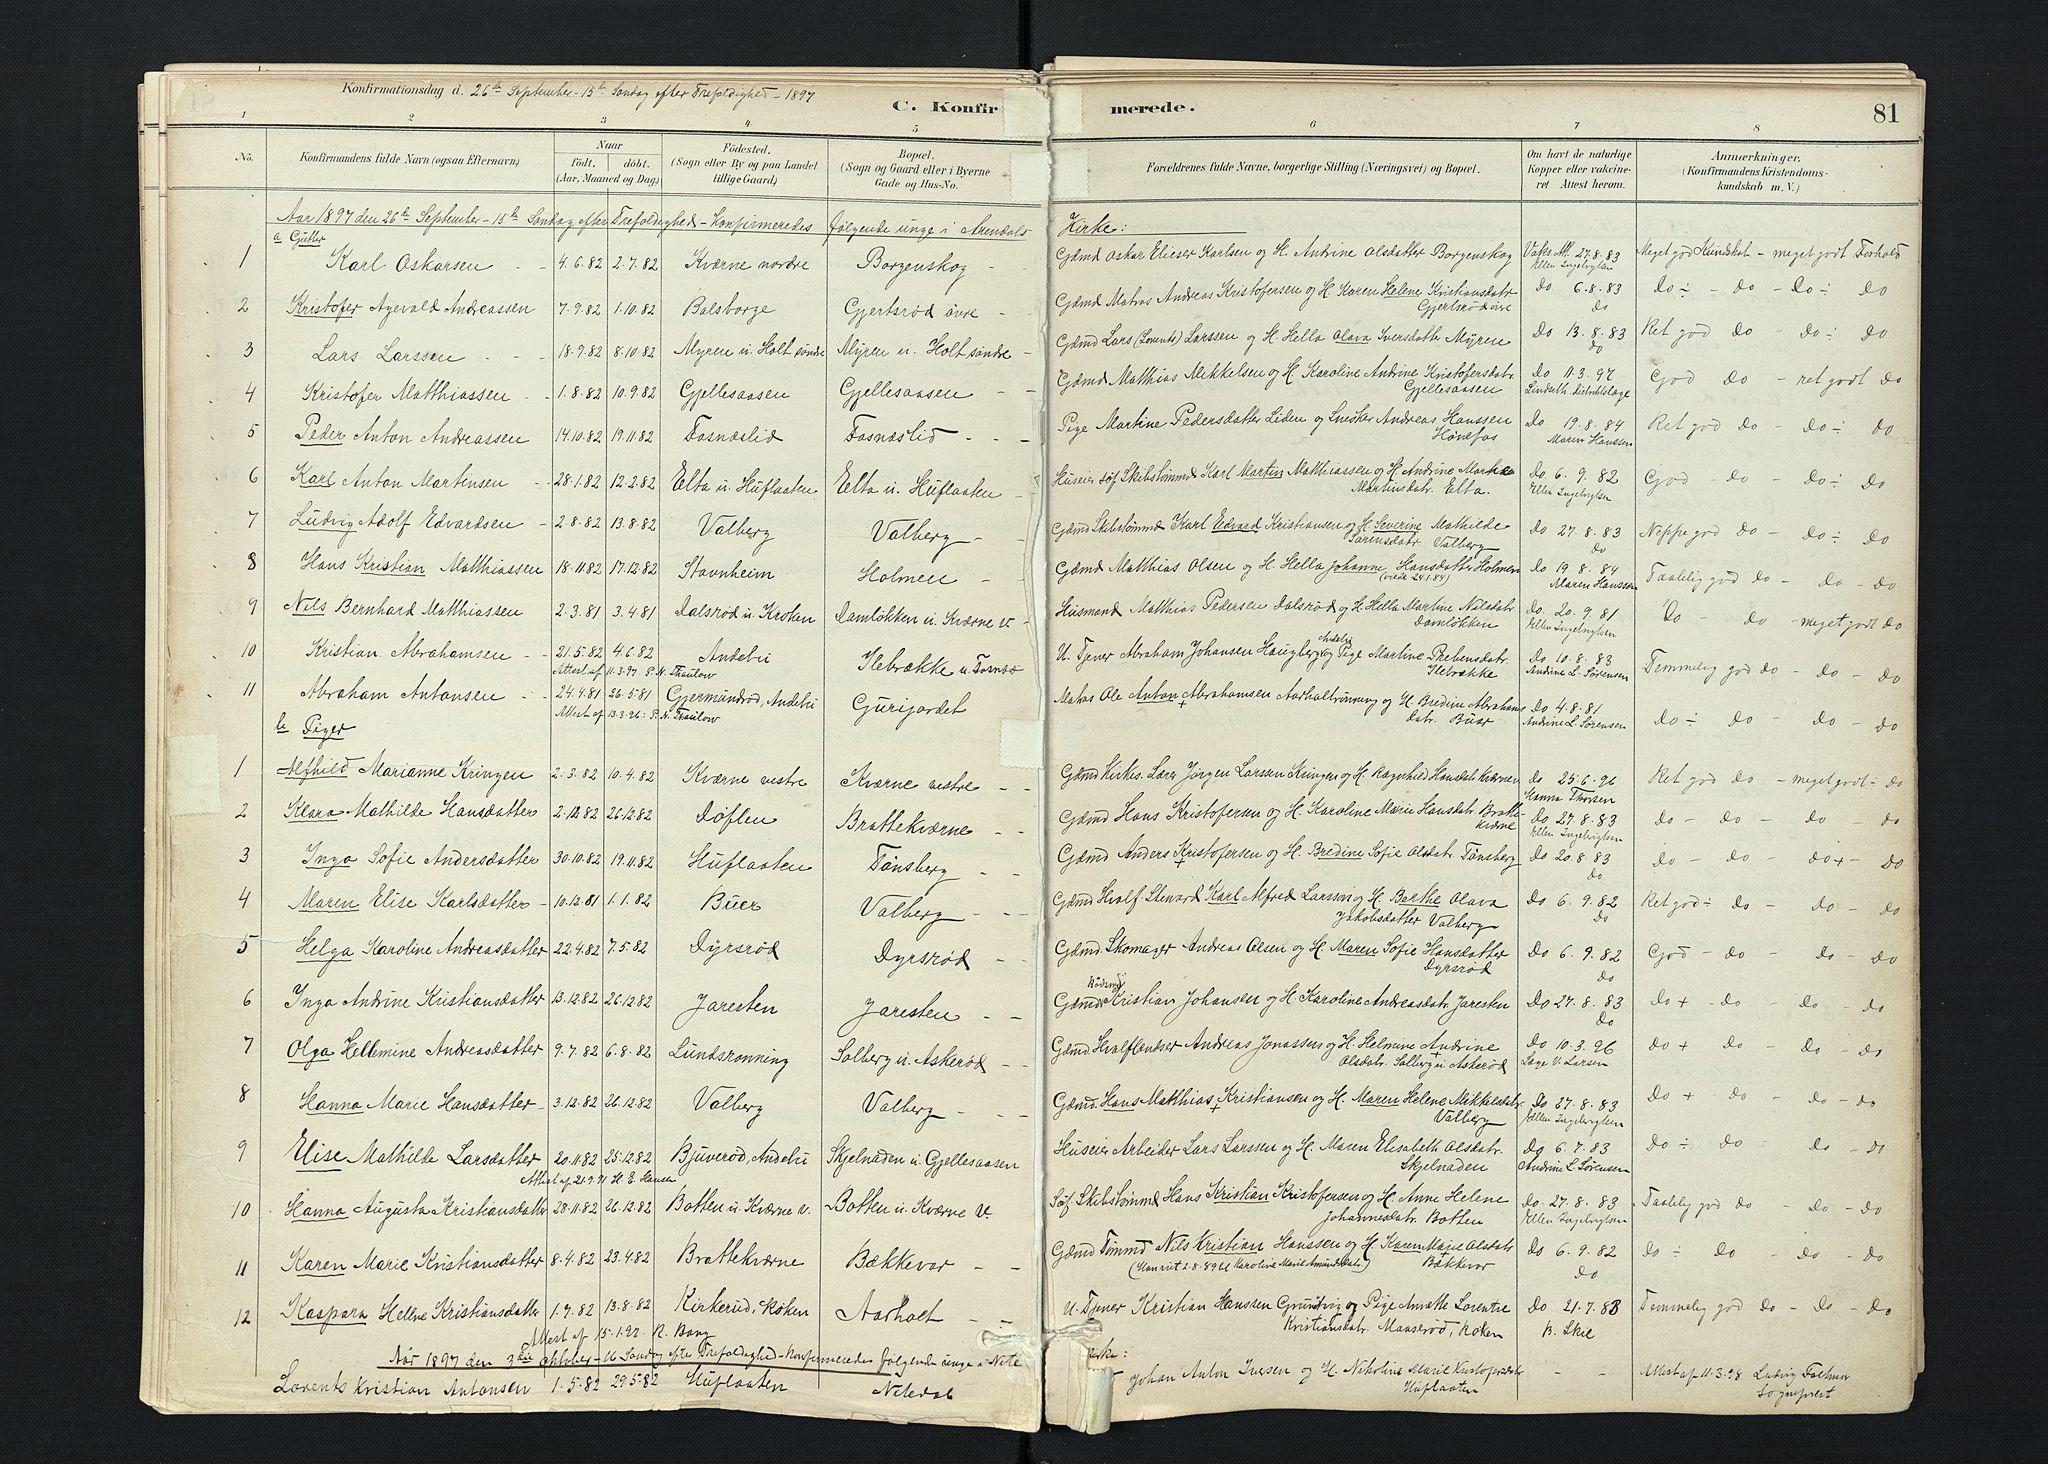 Konfirmationsdag d. 26de September - 15de Søndag efter Trefoldighed - 1897
C. Konfirmerede.
81
1 2 3 4 5 6 7 8
No. Konfirmandens fulde Navn (ogsaa Efternavn) Naar født. døbt. (Aar, Maaned og Dag) Fødested. (Sogn eller By og paa Landet tillige Gaard) Bopæl. (Sogn og Gaard eller i Byerne Gade og Hus-No. Forældrenes fulde Navne, borgerlige Stilling (Næringsvei) og Bopæl. Om havt de naturlige Kopper eller vakcineret Attest herom. Anmærkninger. (Konfirmandens Kristendomskundskab m. V.)
Aar 1897 den 26de September - 15de Søndag efter Trefoldighed - Konfirmeredes følgende unge i Arendals Kirke:
a Gutter
1 Karl Oskarsen 4.6.82 2.7.82 Kværne nordre Borgenskog Gdmd Oskar Elieser Karlsen og H. Andrine Olsdatter Borgenskog Vaks. Att. 27.8.83 Ellen Ingebrigtsen Meget god Kundskab - meget godt Forhold
2 Kristofer Agevald Andreassen 7.9.82 1.10.82 Balsborge Gjertsrød øvre Gdmd Matros Andreas Kristofersen og H. Karen Helene Kristiansdatr Gjertsrød øvre Do 6.8.83 do Do ÷ - do - Do ÷ do
3 Lars Larssen 18.9.82 8.10.82 Myren u. Holt søndre Myren u. Holt søndre Gdmd Lars (Lorents) Larssen og H. Hella Olava Iversdatter Myren Do 13.8.83 do Ret god do - do ÷ do
4 Kristofer Matthiassen 1.8.82 10.9.82 Gjellesaasen Gjellesaasen Gdmd Matthias Mikkelsen og H. Karoline Andrine Kristofersdatr Gjellesaasen Do 11.3.97 Lindseth Distriktslæge God do - ret godt do
5 Peder Anton Andreassen 14.10.82 19.11.82 Fosnæslid Fosnæslid Pige Martine Pedersdatter Liden og Snekker Andreas Hanssen Hønefos Do 19.8.84 Maren Hanssen Ret god do - do ÷ do
6 Karl Anton Martinsen 28.1.82 12.2.82 Elta u. Huflaaten Elta u. Huflaaten Huseier Søf. Skibstømmd Karl Martin Matthiassen og H. Andrine Marthe Martinsdatr. Elta. Do 6.9.82 Ellen Ingebrigtsen God - do - do ÷ do
7 Ludvig Adolf Edvardsen 2.8.82 13.8.82 Valberg Valberg Gdmd Skibstømmd Karl Edvard Kristiansen og H. Severine Mathilde Sørensdatr. Valberg Do 27.8.83 do Neppe god do - do ÷ do
8 Hans Kristian Matthiassen 18.11.82 17.12.82 Stavnheim Holmen Gdmd Matthias Olsen og H. Hella Johanne Hansdatter Holmen Do 19.8.84 Maren Hanssen Taalelig god do - do - do
9 Nils Bernhard Matthiassen 2.3.81 3.4.81 Dalsrød u. Kroken Damløkken u. Kværne v. Husmand Matthias Pedersen Dalsrød og H. Hella Martine Nilsdatr Damløkken Do 20.9.81 Ellen Ingebrigtsen Do - do - meget godt do
10 Kristian Abrahamsen 21.5.82 4.6.82 Andebu Ilebrække u. Fosnæs U. Tjener Abraham Johansen Haugberg Andebu og Pige Martine Prebensdatr. Ilebrække Do 10.8.83 Andrine L. Sørensen Temmelig god do - do - do
Attest af 11.3.97 P. N. Thaulow
11 Abraham Antonsen 24.4.81 26.5.81 Gjermundrød, Andebu Gurijordet Matros Ole Anton Abrahamsen Aarholtrønning og H. Bredine Abrahamsdatr. Buar Do 4.8.81 Andrine L. Sørensen Do ÷ do - do - do
Attest af 13.3.96: P. N. Thaulow
b Piger
1 Alfhild Marianne Kringen 2.3.82 10.4.82 Kværne vestre Kværne vestre Gdmd Kirkes. Lærer Jørgen Larssen Kringen og H. Ragnhild Hansdatr. Kværne v Do 25.6.96 Hanna Thorsen Ret god do - meget godt ÷ do
2 Klara Mathilde Hansdatter 2.12.82 26.12.82 Døflen Brattekværne Gdmd Hans Kristofersen og H. Karoline Marie Hansdatr. Brattekværne Do 27.8.83 Ellen Ingebrigtsen do - do - do - do
3 Inga Sofie Andersdatter 30.10.82 19.11.82 Huflaaten Tønsberg Gdmd Anders Kristofersen og H. Bredine Sofie Olsdatr. Tønsberg Do 20.8.83 do do - do - do + - do
4 Maren Elise Karlsdatter 10.12.81 1.1.82 Buer Valberg Gdmd Hvalf. Steward Karl Alfred Larssen og H. Berthe Olava Jakobsdatter Valberg Do 6.9.82 do Ret god ÷ do - do - do
5 Helga Karoline Andreasdatter 22.4.82 7.5.82 Dyrsrød Dyrsrød Gdmd. Skomager Andreas Olsen og H. Maren Sofie Hansdatter Dyrsrød Do 6.9.82 do God - do - do - do
6 Inga Andrine Kristiansdatter 13.12.82 26.12.82 Jaresten Jaresten Gdmd Kristian Johansen og H. Karoline Andreasdatr. Jaresten Do 27.8.83 do do + - do - do - do
7 Olga Hellemine Andreasdatter 9.7.82 6.8.82 Lundsrønning Solberg u. Askerød Gdmd. Hvalflendser Andreas Jonassen og H. Helmine Andrine Olsdatr. Solberg u. Askerød Do 10.3.96 Læge V. Larsen do + do - do - do
8 Hanna Marie Hansdatter 3.12.82 26.12.82 Valberg Valberg Gdmd. Hans Matthias Kristiansen og H. Maren Helene Mikkelsdatr. Valberg Do 27.8.83 Ellen Ingebrigtsen do + do - do - do
9 Elise Mathilde Larsdatter 20.11.82 25.12.82 Bjuerød, Andebu Skjelnaden u. Gjellesaasen Huseier Arbeider Lars Larssen og H. Maren Elisabeth Olsdatr. Skjelnaden do 6.7.83 Andrine L. Sørensen Do ÷ do - do - do
Attest af 21.9.91 H. E. Hansen
10 Hanna Augusta Kristiansdatter 28.11.82 26.12.82 Botten u. Kværne v. Botten u. Kværne v. Søf. Skibstømmd Hans Kristian Kristofersen og H. Anne Helene Johannesdatr. Botten Do 27.8.83 Ellen Ingebrigtsen Taalelig god do - do - do
11 Karen Marie Kristiansdatter 8.4.82 23.4.82 Brattekværne Bækkevar Gdmd Tømmd Nils Kristian Hanssen og H. Karen Marie Olsdatr Bækkevar Do 6.9.82 do do ÷ do - do - do
12 Kaspara Helene Kristiansdatter 1.7.82 13.8.82 Kirkerud, Røken Aarholt U. Tjener Kristian Hanssen Grundvig og Pige Annette Lorentse Kristiansdatr. Maaserød, Røken Do 21.7.88 B. Skie Temmelig god do - do - do
Attest af 15.1.97 R. Bang
Aar 1897 den 3die Oktober - 16 Søndag efter Trefoldighed - konfirmeredes følgende unge i Nite
Lorents Kristian Antonsen 1.5.82 29.5.82 Huflaaten Nitedal Johan Anton Iversen og H. Nikoline Marie Kristofersdatr Huflaaten Attest af 11.3.98 Ludvig Sognepræst